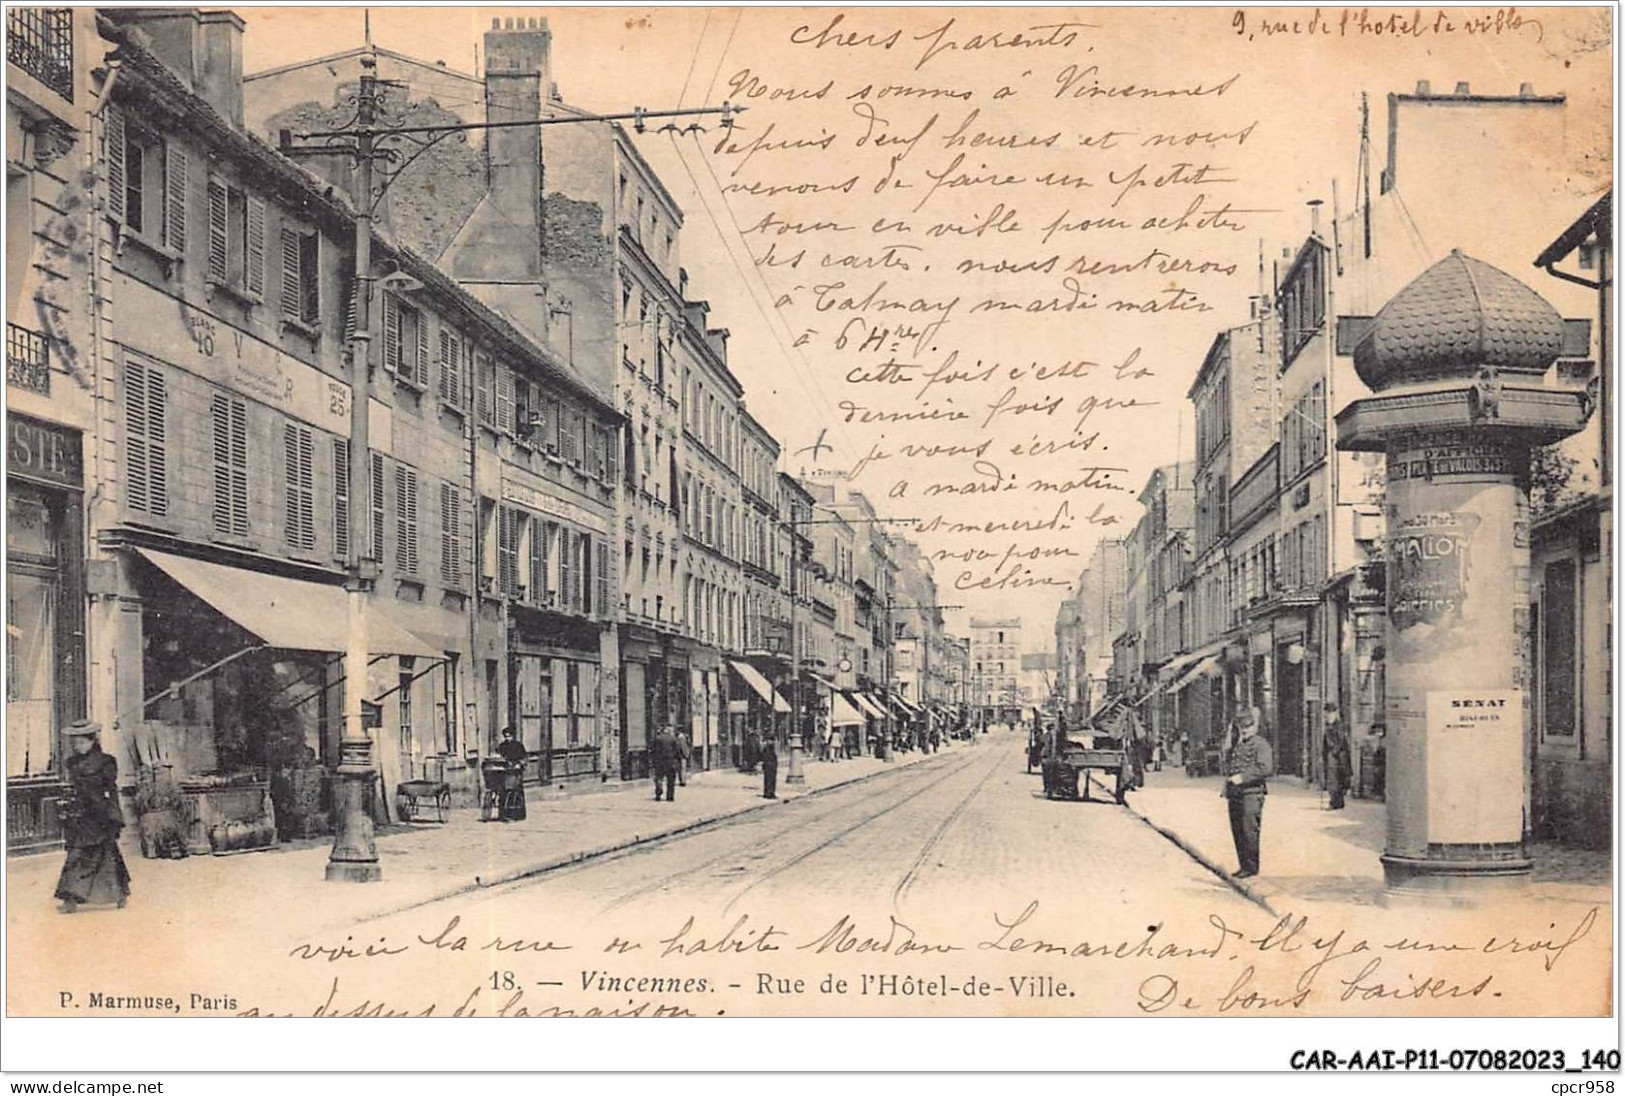 9, rue de l'hotel de ville
chers parents.
Nous sommes à Vincennes
depuis deuf heures et nous
venons de faire un petit
tour en ville pour acheter
des cartes. nous rentrerons
à Talmay mardi matin
à 6 Hres.
cette fois c'est la
dernière fois que
je vous écris.
a mardi matin.
et mercredi la
pour
Céline.
BLANC
10
ROUGE
25
STE
D'AFFICHAGE
SENAT
voici la rue ou habite Madame Lemarchand. Il y a une croif
18. — Vincennes. - Rue de l'Hôtel-de-Ville.
De bons baisers.
P. Marmuse, Paris
au dessus de la maison.
CAR-AAI-P11-07082023_140
delcampe.net
cpcr958